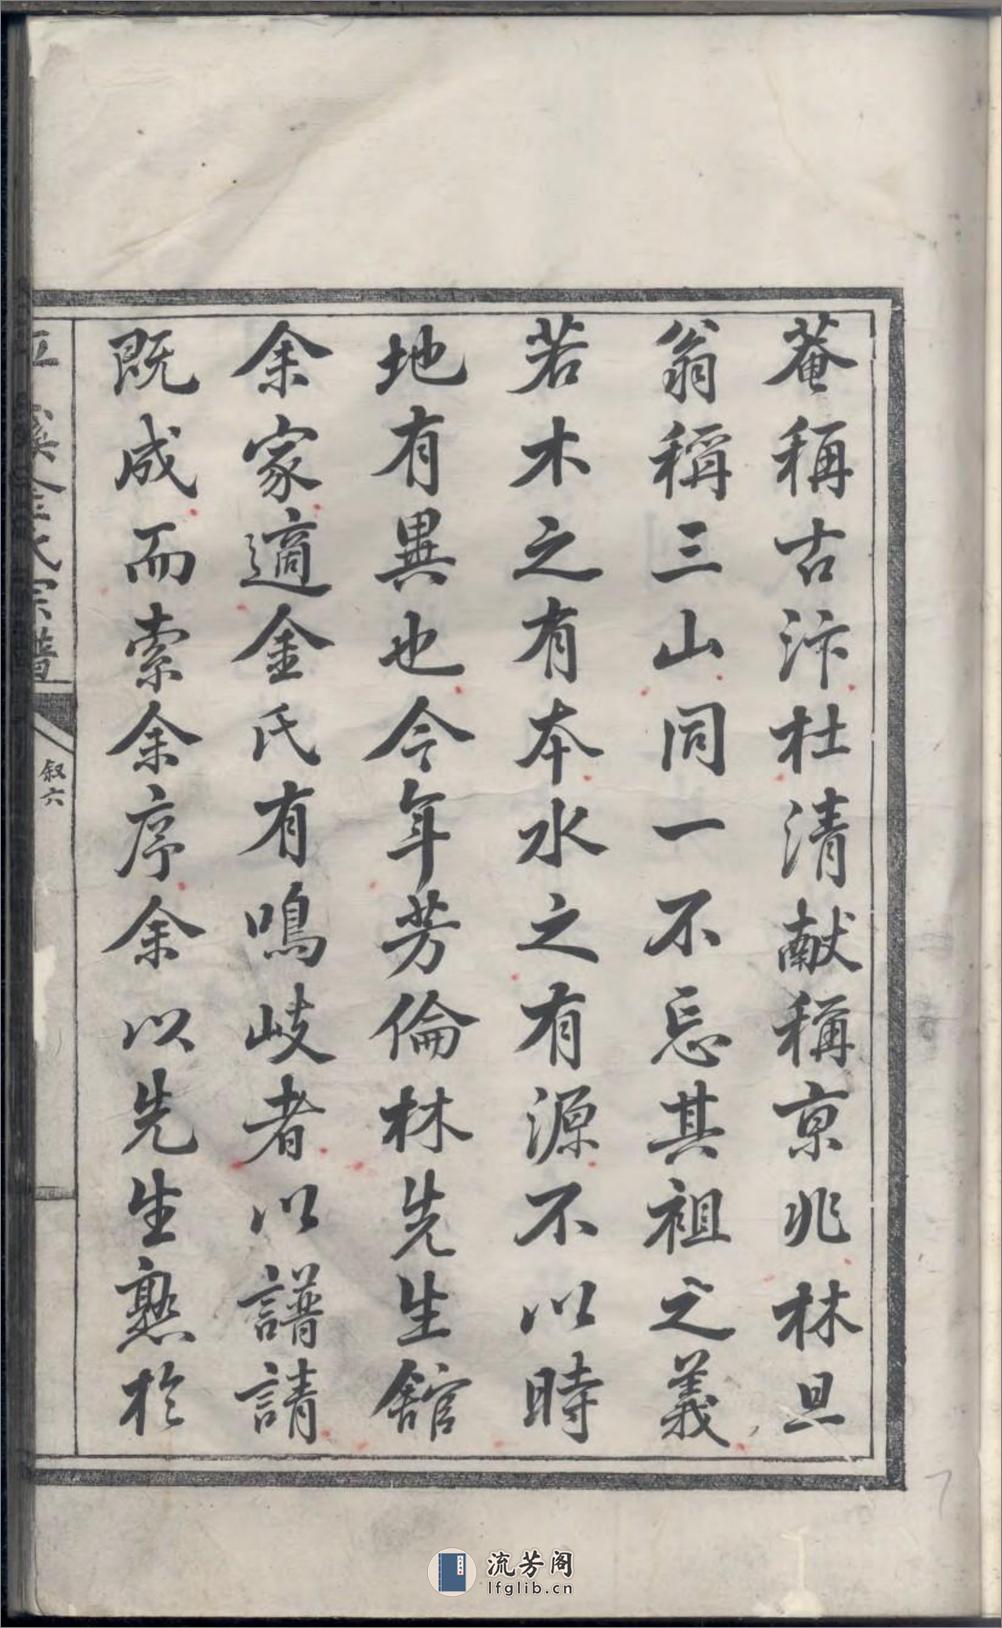 菴稱古汴杜清献稱京兆林旦
翁稱三山同一不忘其祖之義
若木之有本水之有源不以時
地有異也今年芳倫林先生舘
余家適金氏有鳴岐者以譜請
既成而索余序余以先生熟於
溪金氏宗譜
叙六
流芳阁
lfglib.cn